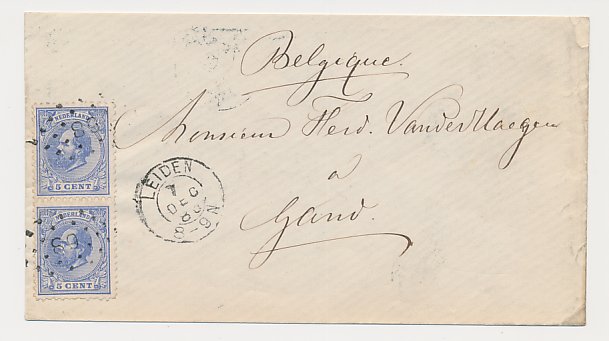 Belgique.
Monsieur Ferd. VanderHaegen
à
Gand.
NEDERLAND
5 CENT
NEDERLAND
5 CENT
LEIDEN
8-9N